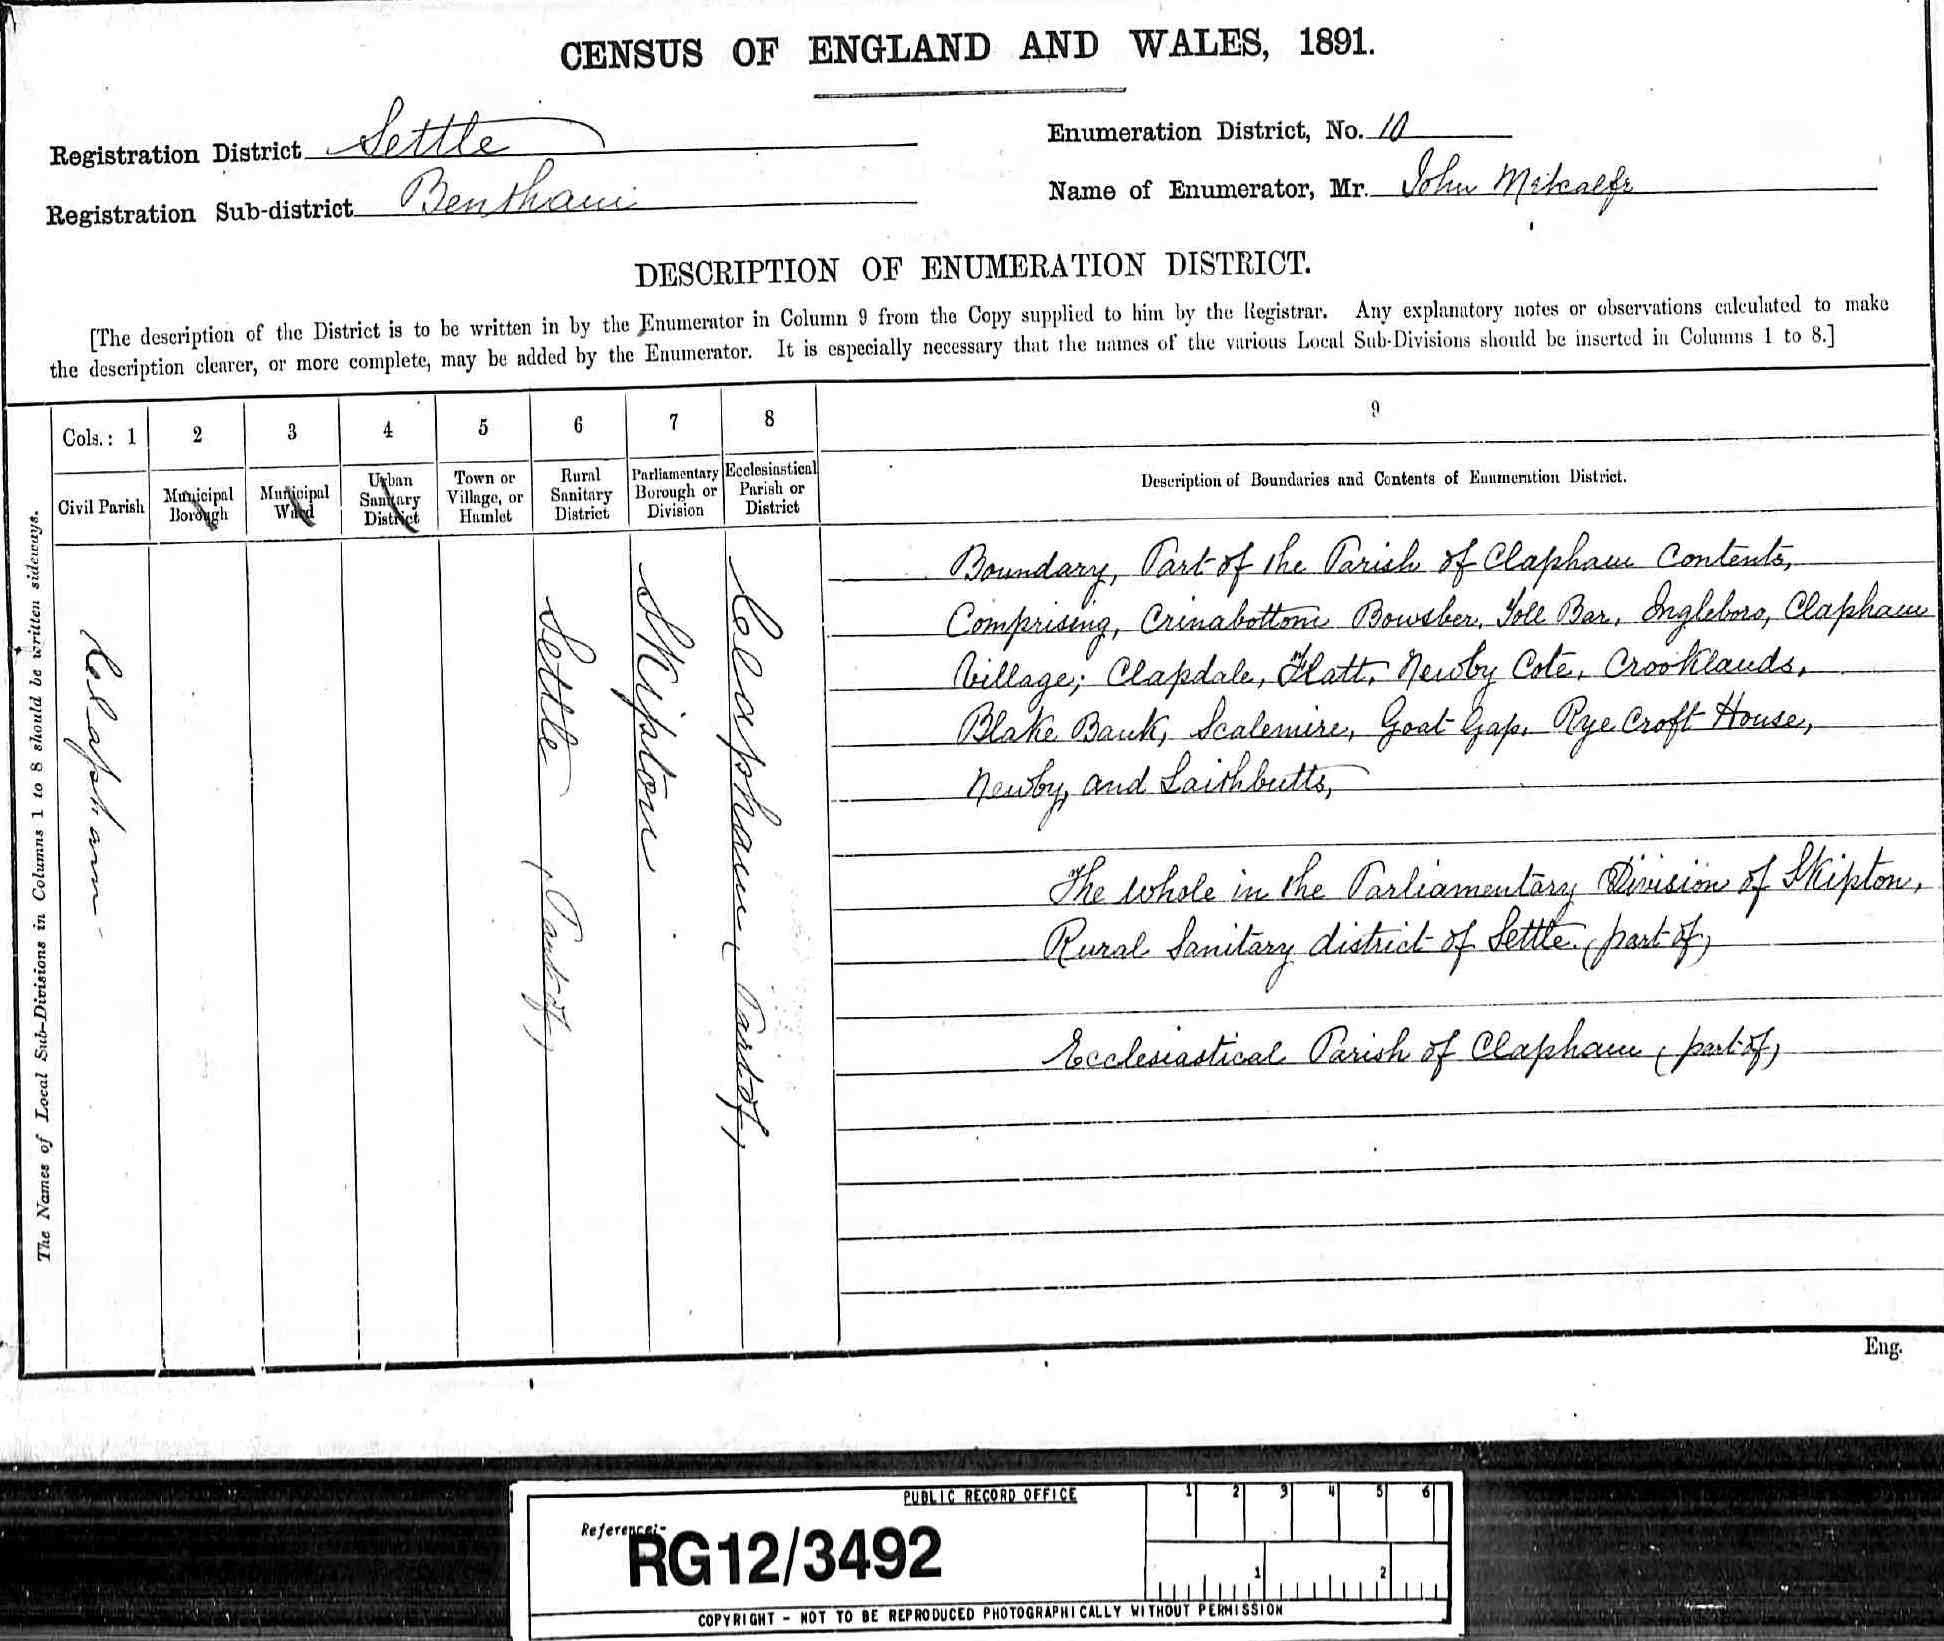 CENSUS OF ENGLAND AND WALES, 1891.
Registration District Settle
Enumeration District, No. 10
Registration Sub-district Bentham
Name of Enumerator, Mr. John Metcalfe
DESCRIPTION OF ENUMERATION DISTRICT.
[The description of the District is to be written in by the Enumerator in Column 9 from the Copy supplied to him by the Registrar. Any explanatory notes or observations calculated to make
the description clearer, or more complete, may be added by the Enumerator. It is especially necessary that the names of the various Local Sub-Divisions should be inserted in Columns 1 to 8.]
The Names of Local Sub-Divisions in Columns 1 to 8 should be written sideways.
Cols.: 1 2 3 4 5 6 7 8 9
Civil Parish
Municipal
Borough
Municipal
Ward
Urban
Sanitary
District
Town or
Village, or
Hamlet
Rural
Sanitary
District
Parliamentary
Borough or
Division
Ecclesiastical
Parish or
District
Description of Boundaries and Contents of Enumeration District.
Clapham
Settle (Part of)
Skipton
Clapham (Part of)
Boundary, Part of the Parish of Clapham Contents,
Comprising, Crinabottom Bowsber, Toll Bar, Ingleboro, Clapham
Village; Clapdale, Flatt, Newby Cote, Crooklands,
Blake Bank, Scalemire, Goat Gap, Rye Croft House,
Newby, and Laithbutts,
The whole in the Parliamentary Division of Skipton,
Rural Sanitary district of Settle (part of)
Ecclesiastical Parish of Clapham (part of)
Eng.
PUBLIC RECORD OFFICE
Reference:-
RG12/3492
1 2 3 4 5 6
1 2
COPYRIGHT - NOT TO BE REPRODUCED PHOTOGRAPHICALLY WITHOUT PERMISSION